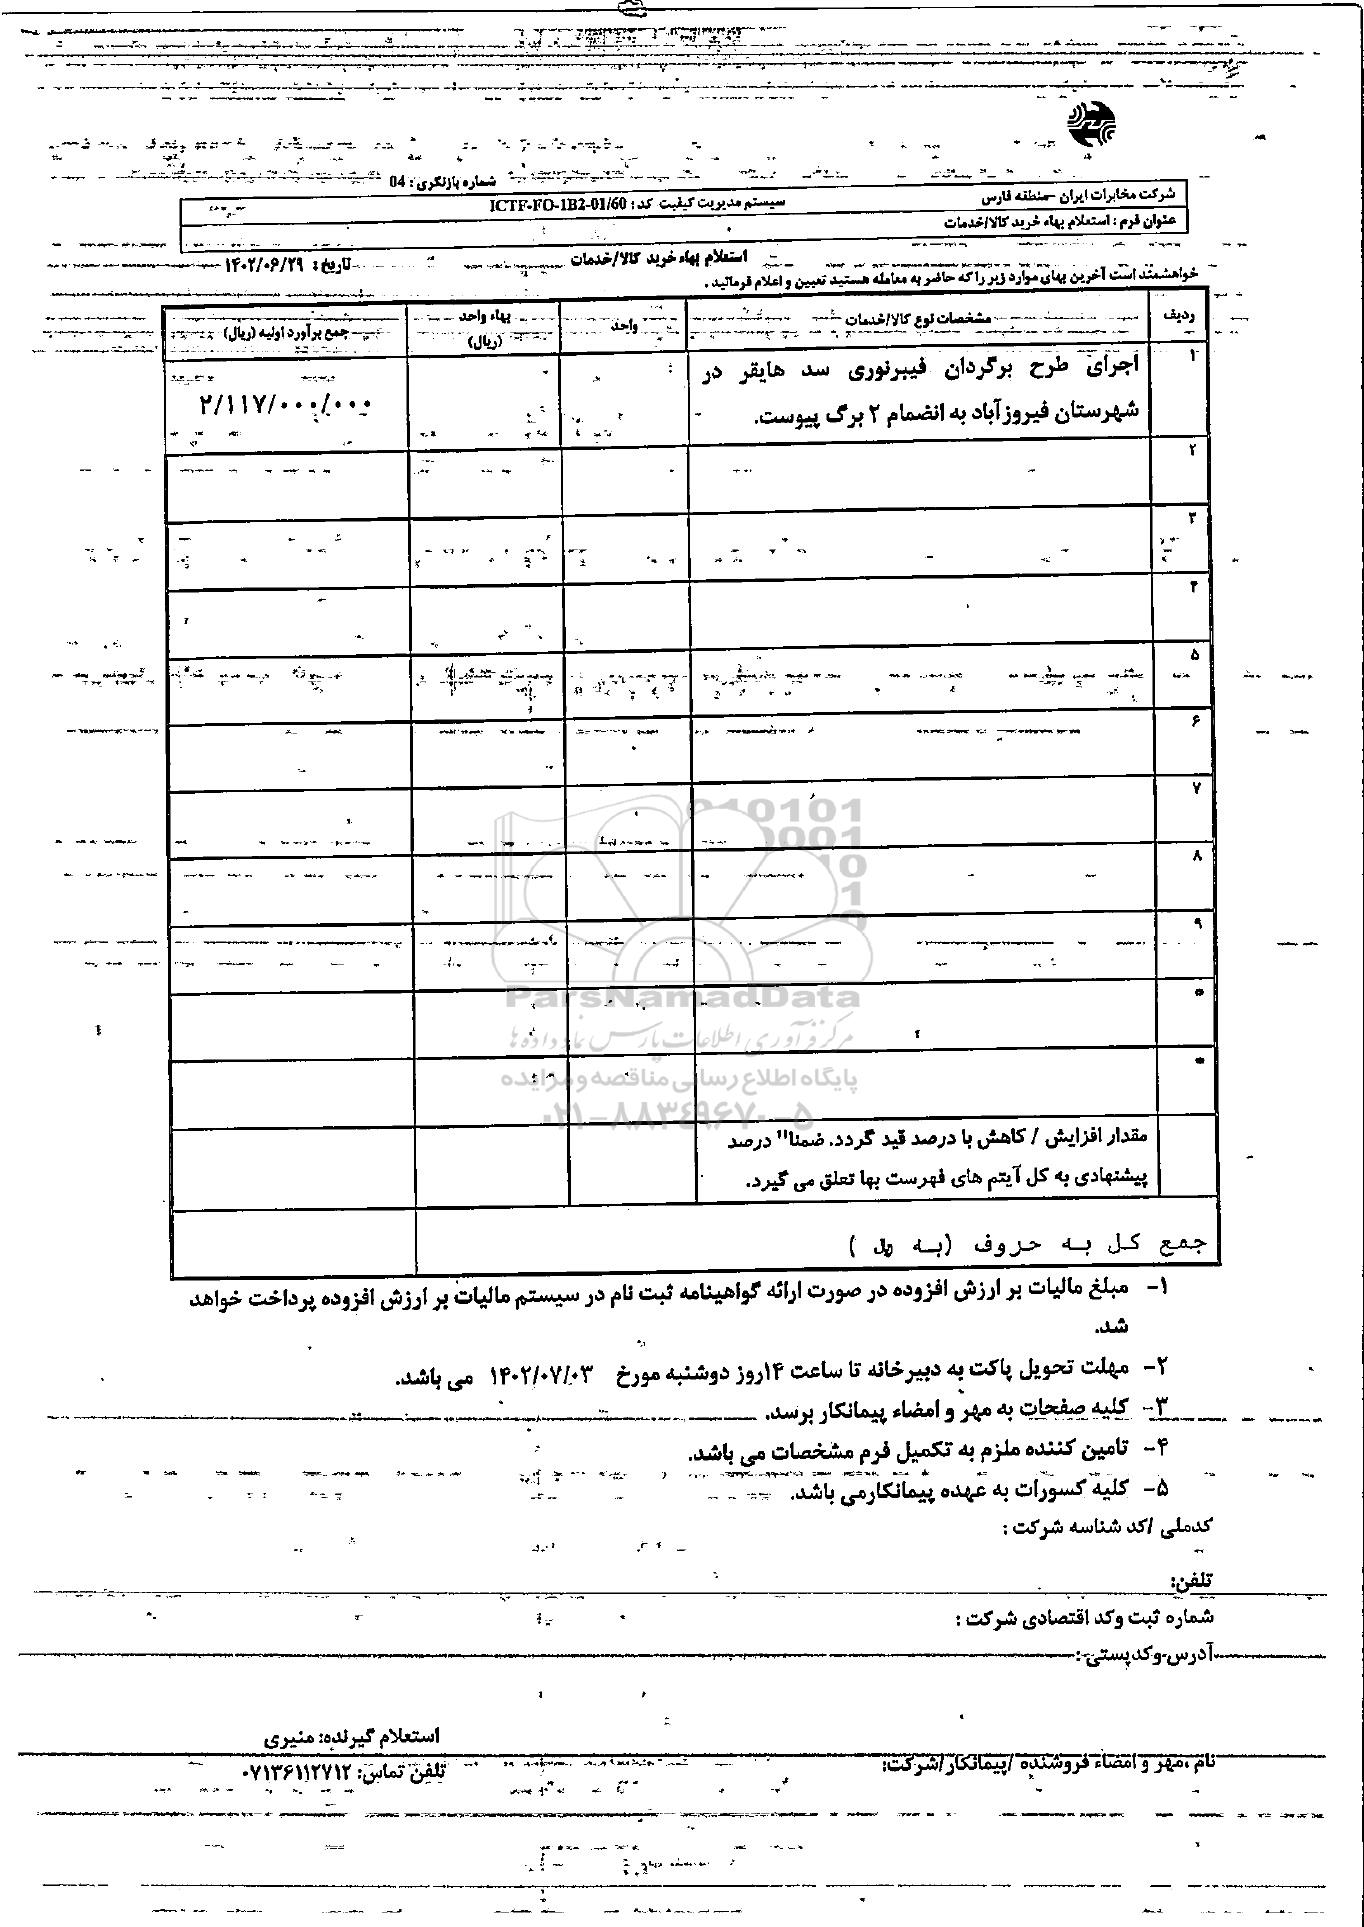 شماره بازنگری : 04
شرکت مخابرات ایران –منطقه فارس
سیستم مدیریت کیفیت کد : ICTF-FO-1B2-01/60
عنوان فرم : استعلام بهاء خرید کالا/خدمات
استعلام بهاء خرید کالا/خدمات
تاریخ : ۱۴۰۲/۰۶/۲۹
خواهشمند است آخرین بهای موارد زیر را که حاضر به معامله هستید تعیین و اعلام فرمائید .
ردیف
مشخصات نوع کالا/خدمات
واحد
بهاء واحد
(ریال)
جمع برآورد اولیه (ریال)
۱
اجرای طرح برگردان فیبرنوری سد هایقر در
شهرستان فیروزآباد به انضمام ۲ برگ پیوست.
۲/۱۱۷/۰۰۰/۰۰۰
۲
۳
۴
۵
۶
۷
۸
۹
مقدار افزایش / کاهش با درصد قید گردد. ضمنا" درصد
پیشنهادی به کل آیتم های فهرست بها تعلق می گیرد.
جمع کل به حروف (به ریال )
۱- مبلغ مالیات بر ارزش افزوده در صورت ارائه گواهینامه ثبت نام در سیستم مالیات بر ارزش افزوده پرداخت خواهد
شد.
۲- مهلت تحویل پاکت به دبیرخانه تا ساعت ۱۴روز دوشنبه مورخ ۱۴۰۲/۰۷/۰۳ می باشد.
۳- کلیه صفحات به مهر و امضاء پیمانکار برسد.
۴- تامین کننده ملزم به تکمیل فرم مشخصات می باشد.
۵- کلیه کسورات به عهده پیمانکارمی باشد.
کدملی /کد شناسه شرکت :
تلفن:
شماره ثبت وکد اقتصادی شرکت :
آدرس-وکدپستی-:
استعلام گیرنده: منیری
نام ،مهر و امضاء فروشنده /پیمانکار/شرکت:
تلفن تماس: ۰۷۱۳۶۱۱۲۷۱۲
ParsNamadData
مرکز فرآوری اطلاعات پارس نماد داده ها
پایگاه اطلاع رسانی مناقصه و مزایده
۰۲۱-۸۸۳۴۹۶۷۰-۵